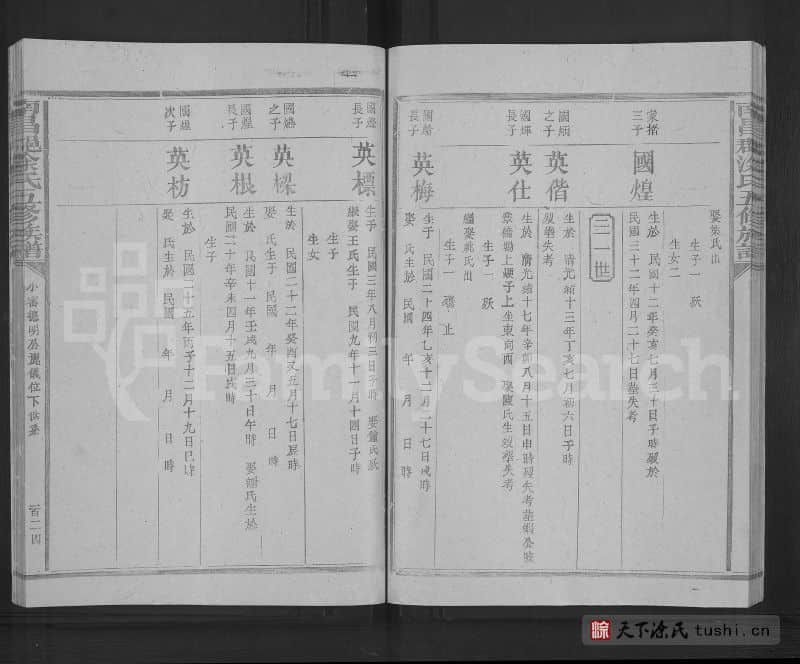 南昌郡涂氏五修族譜
娶葉氏出
生子一 跃
生女二
三子
國煌
生於 民國十二年癸亥七月三十日子時 殁於
民國三十二年四月二十七日 墓失考
三一世
之子
英偕
生於 清光緒十三年丁亥七月初六日子時
殁 墓失考
國煇
長子
英仕
生於 清光緒十七年辛卯八月十五日申時 殁失考 墓
坐東向西 娶陳氏 生 失考
生子一 跃
繼娶 氏出
生子一 止
長子
英梅
生于 民國二十四年乙亥十二月二十七日戌時
娶 氏生於 民國 年 月 日 時
國
長子
英標
生于 民國三年八月初三日子時 娶鍾氏
繼娶王氏生于 民國九年十一月十四日子時
生子
生女
國
之子
英樑
生於 民國二十二年癸酉又五月十七日辰時
娶 氏生于 民國 年 月 日 時
國煌
長子
英根
生於 民國十一年壬戌九月三十日午時 娶謝氏生於
民國二十年辛未四月十五日戌時
生子
國煌
次子
英枋
生於 民國二十五年丙子十二月十九日巳時
娶 氏生於 民國 年 月 日 時
南昌郡涂氏五修族譜
明公 儀位下世系
一百二四
FamilySearch
涂 天下涂氏 tushi.cn